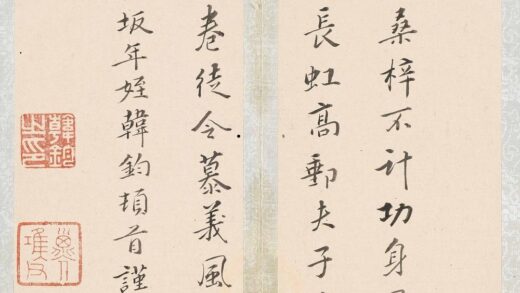 桑梓不計功身
長虹高郵夫子
卷徒令慕義風
坂年姪韓鈞頓首謹
韓鈞之印